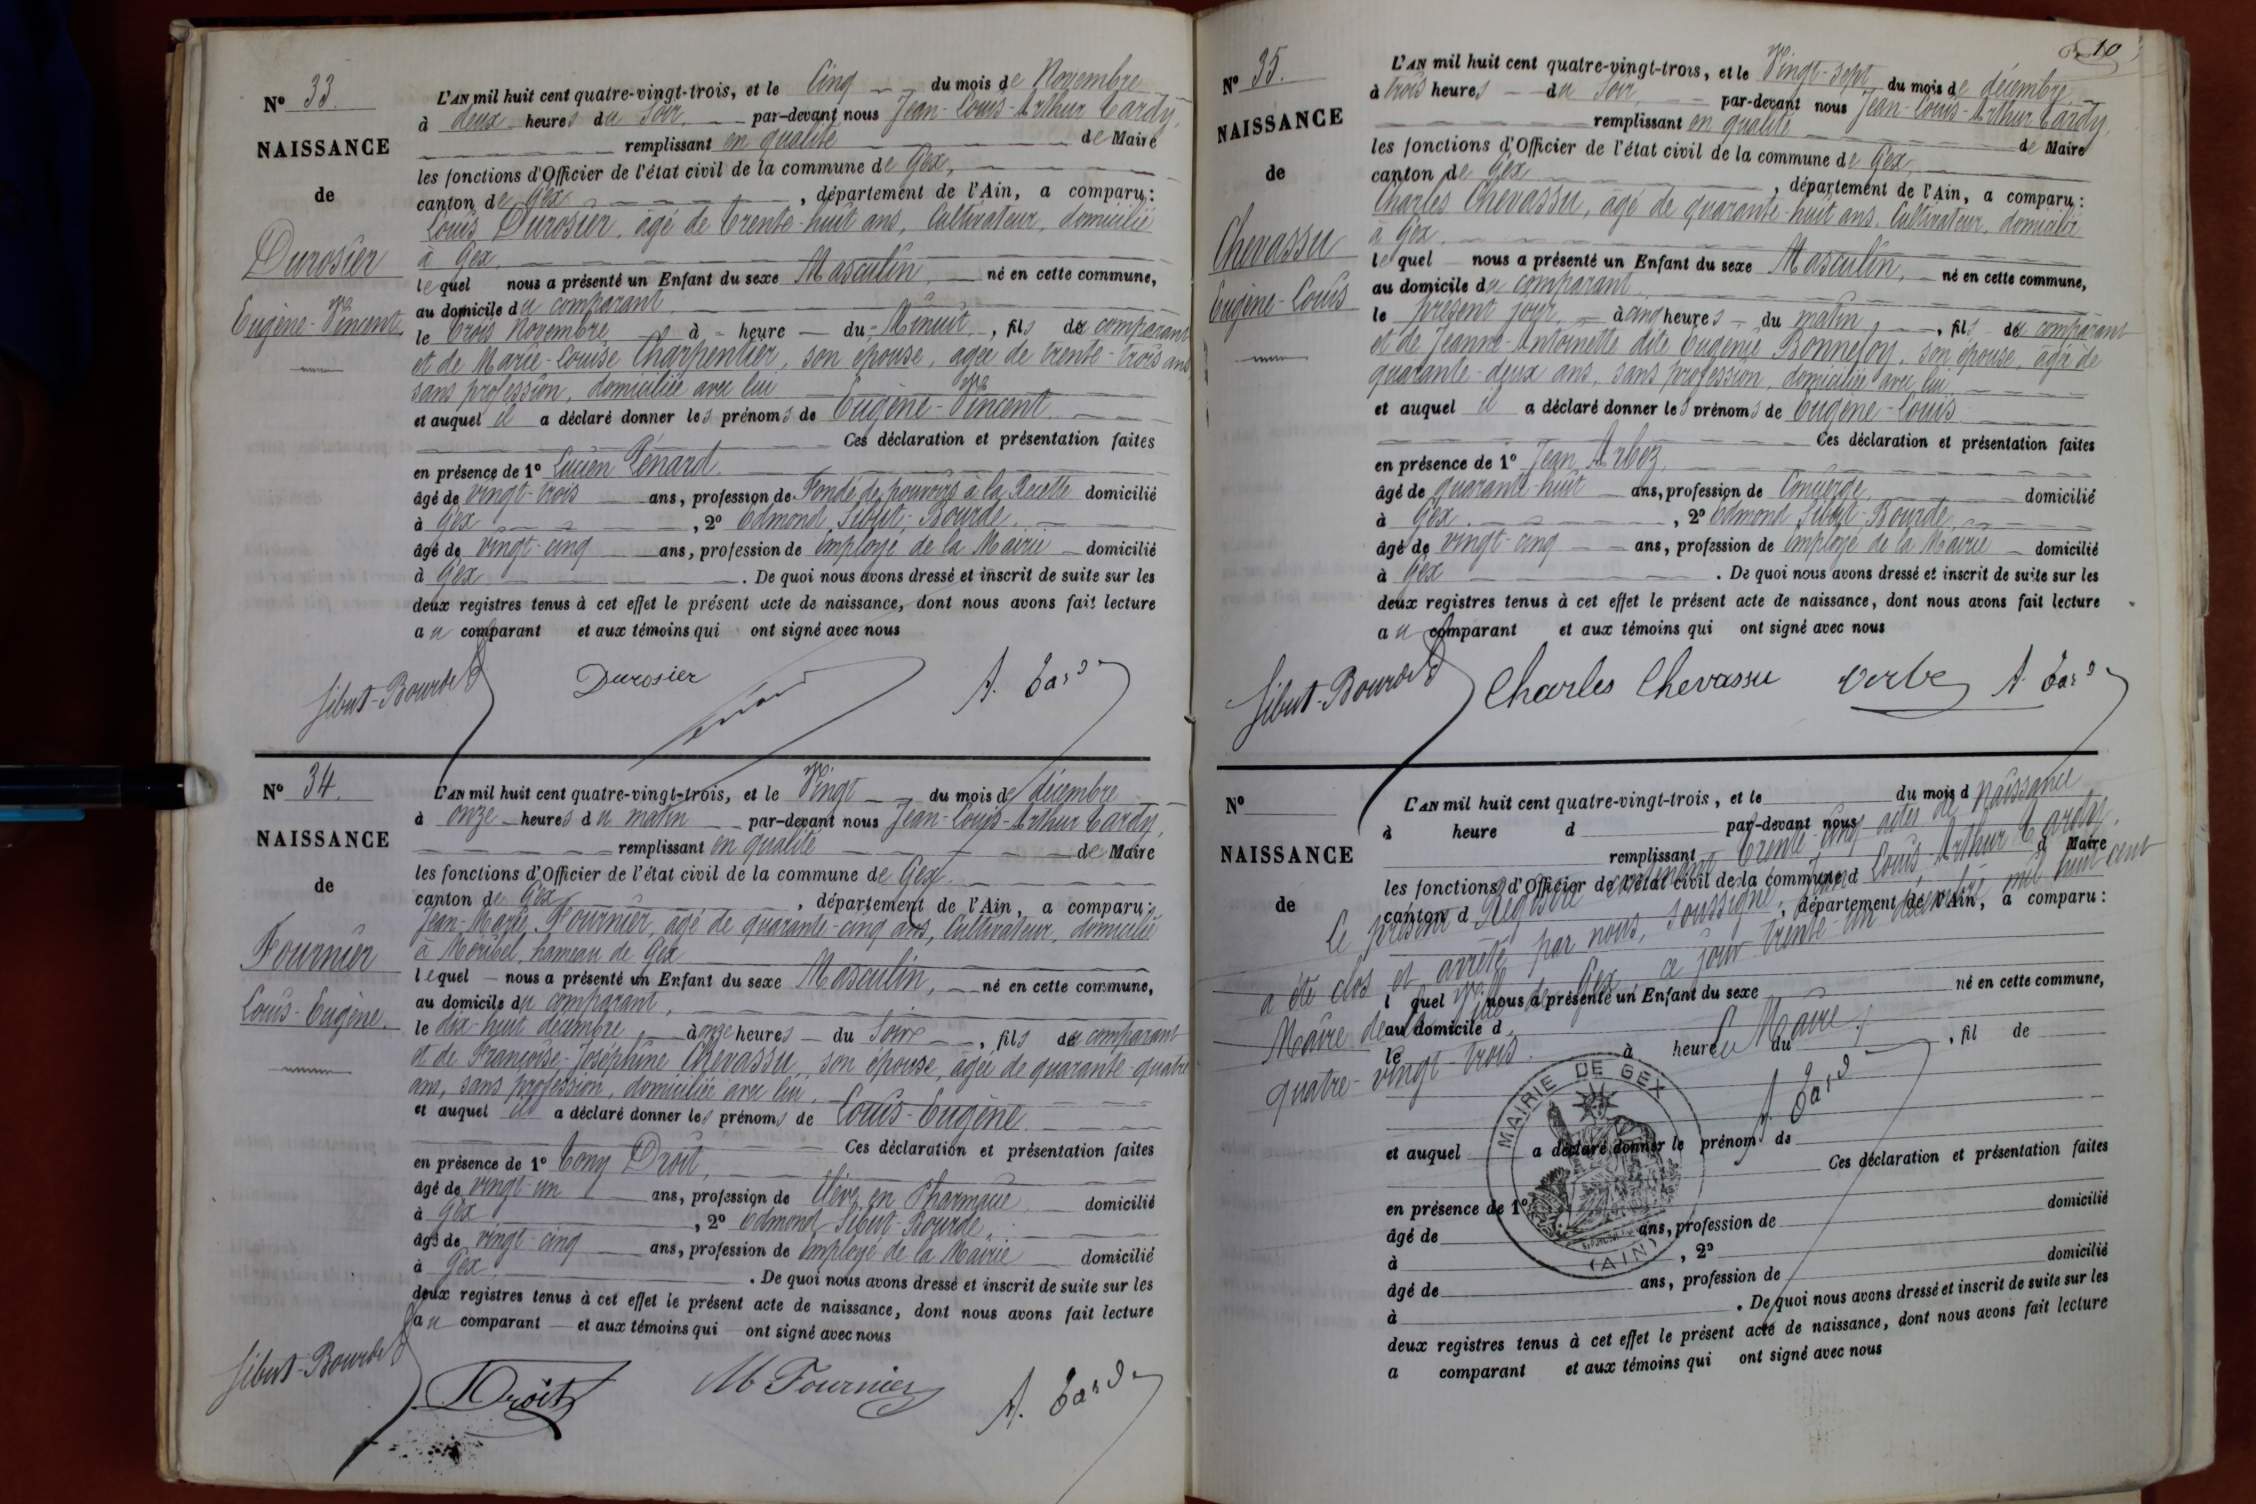 N° 33.
NAISSANCE
de
Durosier
Eugène-Vincent
L'AN mil huit cent quatre-vingt-trois, et le Cinq du mois de Novembre
à deux heures du Soir par-devant nous Jean-Louis-Arthur Tardy,
remplissant en qualité de Maire
les fonctions d'Officier de l'état civil de la commune de Gex,
canton de Gex, département de l'Ain, a comparu:
Louis Durosier, âgé de trente-huit ans, Cultivateur, domicilié
à Gex.
lequel nous a présenté un Enfant du sexe Masculin, né en cette commune,
au domicile du comparant
le trois Novembre à heure du Minuit, fils du comparant
et de Marie-Louise Charpentier, son épouse, agée de trente-trois ans
sans profession, domiciliée avec lui
et auquel il a déclaré donner les prénoms de Eugène-Vincent.
Ces déclaration et présentation faites
en présence de 1° Lucien Pénard
âgé de vingt-trois ans, profession de Fondé de pouvoirs à la Recette domicilié
à Gex, 2° Edmond Sibut-Bourde.
âgé de vingt-cinq ans, profession de Employé de la Mairie domicilié
à Gex. De quoi nous avons dressé et inscrit de suite sur les
deux registres tenus à cet effet le présent acte de naissance, dont nous avons fait lecture
au comparant et aux témoins qui ont signé avec nous
Sibut-Bourde Durosier A. Tardy
N° 34.
NAISSANCE
de
Fournier
Louis-Eugène.
L'AN mil huit cent quatre-vingt-trois, et le Vingt du mois de décembre
à onze heures du matin par-devant nous Jean-Louis-Arthur Tardy,
remplissant en qualité de Maire
les fonctions d'Officier de l'état civil de la commune de Gex.
canton de Gex, département de l'Ain, a comparu:
Jean-Marie Fournier, agé de quarante-cinq ans, Cultivateur, domicilié
à Mouhel, hameau de Gex
lequel nous a présenté un Enfant du sexe Masculin, né en cette commune,
au domicile du comparant,
le dix-huit décembre à onze heures du Soir, fils du comparant
et de Françoise-Joséphine Chevassu, son épouse, agée de quarante-quatre
ans, sans profession, domiciliée avec lui.
et auquel il a déclaré donner les prénoms de Louis-Eugène.
Ces déclaration et présentation faites
en présence de 1° Tony Droit,
âgé de vingt-un ans, profession de Elève en Pharmacie domicilié
à Gex, 2° Edmond Sibut-Bourde,
âgé de vingt-cinq ans, profession de Employé de la Mairie domicilié
à Gex. De quoi nous avons dressé et inscrit de suite sur les
deux registres tenus à cet effet le présent acte de naissance, dont nous avons fait lecture
au comparant et aux témoins qui ont signé avec nous
Sibut-Bourde Droit M Fournier A. Tardy
10
N° 35.
NAISSANCE
de
Chevassu
Eugène-Louis
L'AN mil huit cent quatre-vingt-trois, et le Vingt-sept du mois de décembre
à trois heures du Soir par-devant nous Jean-Louis-Arthur Tardy,
remplissant en qualité de Maire
les fonctions d'Officier de l'état civil de la commune de Gex,
canton de Gex, département de l'Ain, a comparu:
Charles Chevassu, âgé de quarante-huit ans, Cultivateur, domicilié
à Gex.
lequel nous a présenté un Enfant du sexe Masculin, né en cette commune,
au domicile du comparant.
le présent jour, à cinq heures du matin, fils du comparant
et de Jeanne-Antoinette dite Eugénie Bonnefoy, son épouse, agée de
quarante-deux ans, sans profession, domiciliée avec lui
et auquel il a déclaré donner les prénoms de Eugène-Louis
Ces déclaration et présentation faites
en présence de 1° Jean Arbez,
âgé de quarante-huit ans, profession de Concierge, domicilié
à Gex, 2° Edmond Sibut-Bourde,
âgé de vingt-cinq ans, profession de Employé de la Mairie domicilié
à Gex. De quoi nous avons dressé et inscrit de suite sur les
deux registres tenus à cet effet le présent acte de naissance, dont nous avons fait lecture
au comparant et aux témoins qui ont signé avec nous
Sibut-Bourde Charles Chevassu Arbez A. Tardy
N°
NAISSANCE
de
L'AN mil huit cent quatre-vingt-trois, et le du mois d
à heure d par-devant nous
remplissant d Maire
les fonctions d'Officier de l'état civil de la commune d
canton d , département de l'Ain, a comparu:
l quel nous a présenté un Enfant du sexe né en cette commune,
au domicile d
le à heure du , fil de
et auquel a déclaré donner le prénom de
Ces déclaration et présentation faites
en présence de 1°
âgé de ans, profession de domicilié
à , 2°
âgé de ans, profession de domicilié
à . De quoi nous avons dressé et inscrit de suite sur les
deux registres tenus à cet effet le présent acte de naissance, dont nous avons fait lecture
a comparant et aux témoins qui ont signé avec nous
Le présent Registre contenant trente-cinq actes de Naissance
a été clos et arrêté par nous, soussigné, Jean-Louis-Arthur Tardy,
Maire de la Ville de Gex ce jour trente-un décembre mil huit cent
quatre-vingt-trois.
Le Maire,
A Tardy
MAIRIE DE GEX
(AIN)